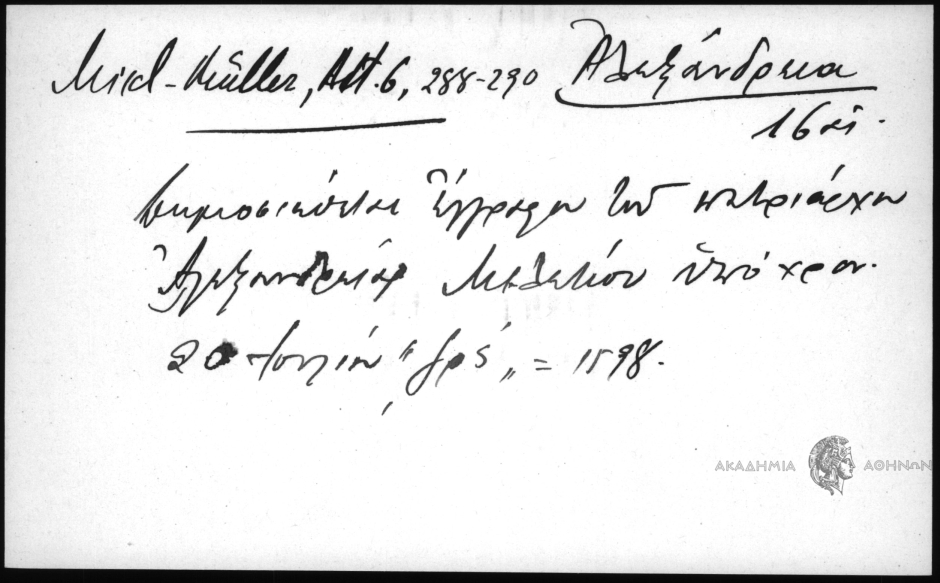 Mikl-Müller, Act. 6, 288-290 Ἀλεξάνδρεια
16 αἰ.
Δημοσιεύεται ἔγγραφον τοῦ πατριάρχου
Ἀλεξανδρείας Μελετίου ὑπό χρον.
20 Ἰουλίου " ͵ζρς „ = 1598.
ΑΚΑΔΗΜΙΑ ΑΘΗΝΩΝ